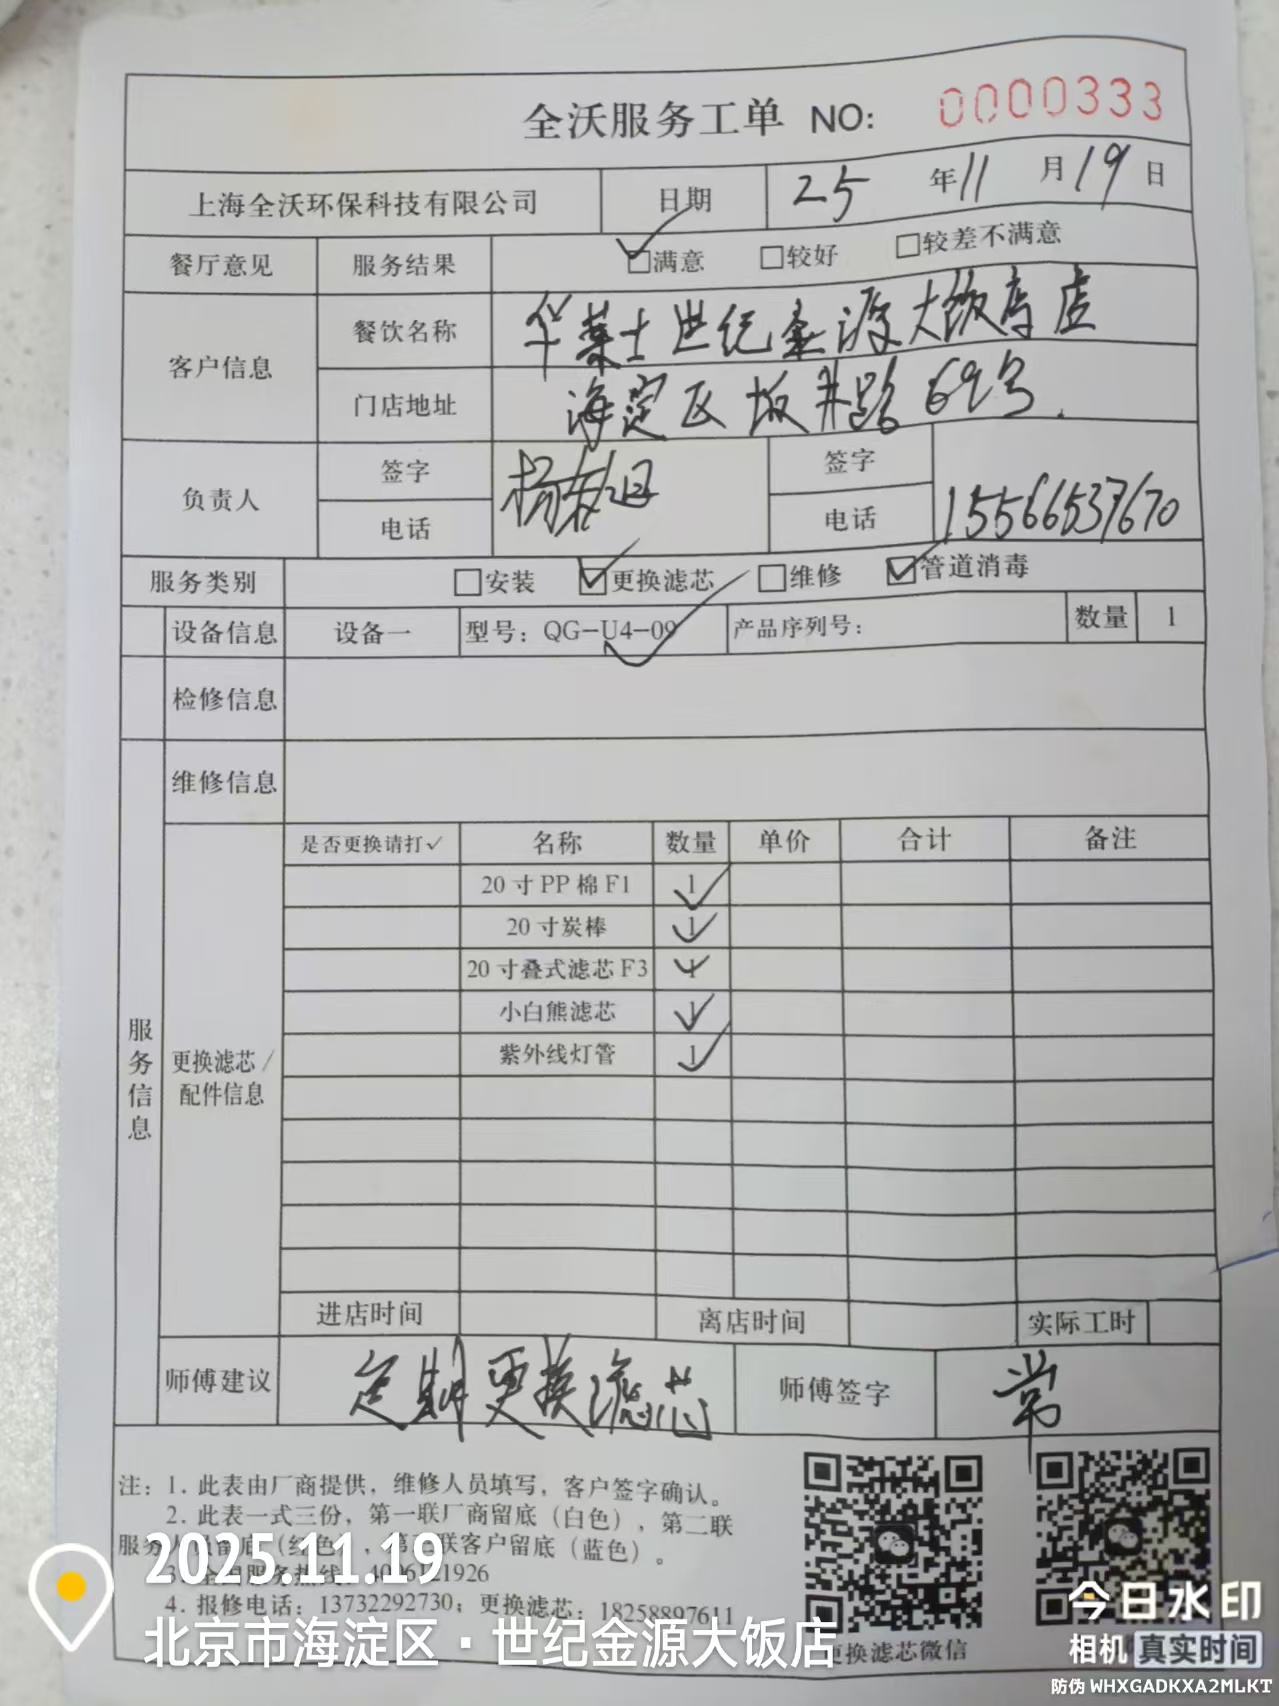 全沃服务工单 NO: 0000333
上海全沃环保科技有限公司 日期 25 年 11 月 19 日
餐厅意见 服务结果 ☑满意 □较好 □较差不满意
客户信息 餐饮名称 华莱士世纪金源大饭店店
门店地址 海淀区板井路69号.
负责人 签字 签字
电话 电话 15566537670
服务类别 □安装 ☑更换滤芯 □维修 ☑管道消毒
设备信息 设备一 型号：QG-U4-09 ✓ 产品序列号： 数量 1
检修信息
维修信息
是否更换请打✓ 名称 数量 单价 合计 备注
20寸PP棉F1 1 ✓
20寸炭棒 1 ✓
20寸叠式滤芯F3 1 ✓
小白熊滤芯 1 ✓
紫外线灯管 1 ✓
服务信息
更换滤芯/
配件信息
进店时间 离店时间 实际工时
师傅建议 定期更换滤芯 师傅签字 常
注：1. 此表由厂商提供，维修人员填写，客户签字确认。
2. 此表一式三份，第一联厂商留底（白色），第二联
服务人员留底（红色），第三联客户留底（蓝色）。
3. 全国服务热线：
4. 报修电话：13732292730；更换滤芯：18258897611
更换滤芯微信
2025.11.19
北京市海淀区·世纪金源大饭店
今日水印
相机 真实时间
防伪 WHXGADKXA2MLKT